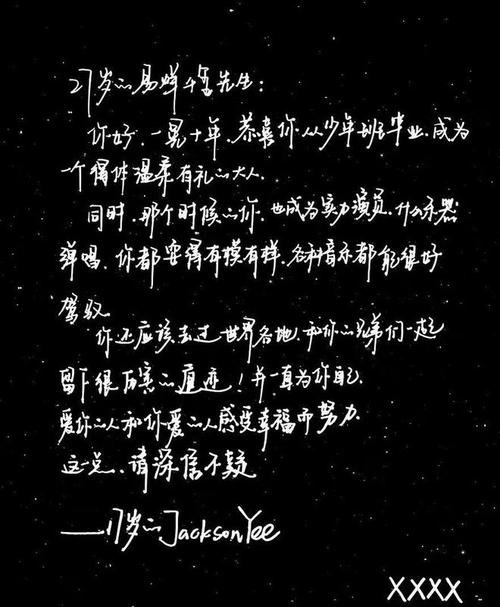 27岁的易烊千玺先生：
你好，一晃十年，恭喜你从少年班毕业，成为
一个得体温柔有礼的大人.
同时，那个时候的你，也成为实力演员，什么乐器
弹唱，你都耍得有模有样，各种音乐都能很好
驾驭
你还应该去过世界各地，和你的兄弟们一起
留下很厉害的痕迹！并一直为你自己，
爱你的人和你爱的人感受幸福而努力.
这点，请深信不疑
——17岁的Jackson Yee
XXXX